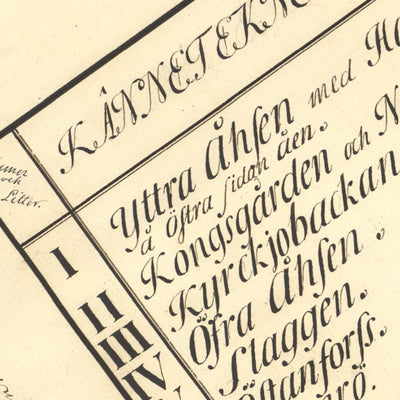 KÄNNETEKN
umer
och
Litter.
Yttra Åhsen med Ha
å Östra sidan åen.
I Kongsgården och N
Kyrckjobackan
II Öfra Åhsen.
III Slaggen.
IV Östanforss.
rö.